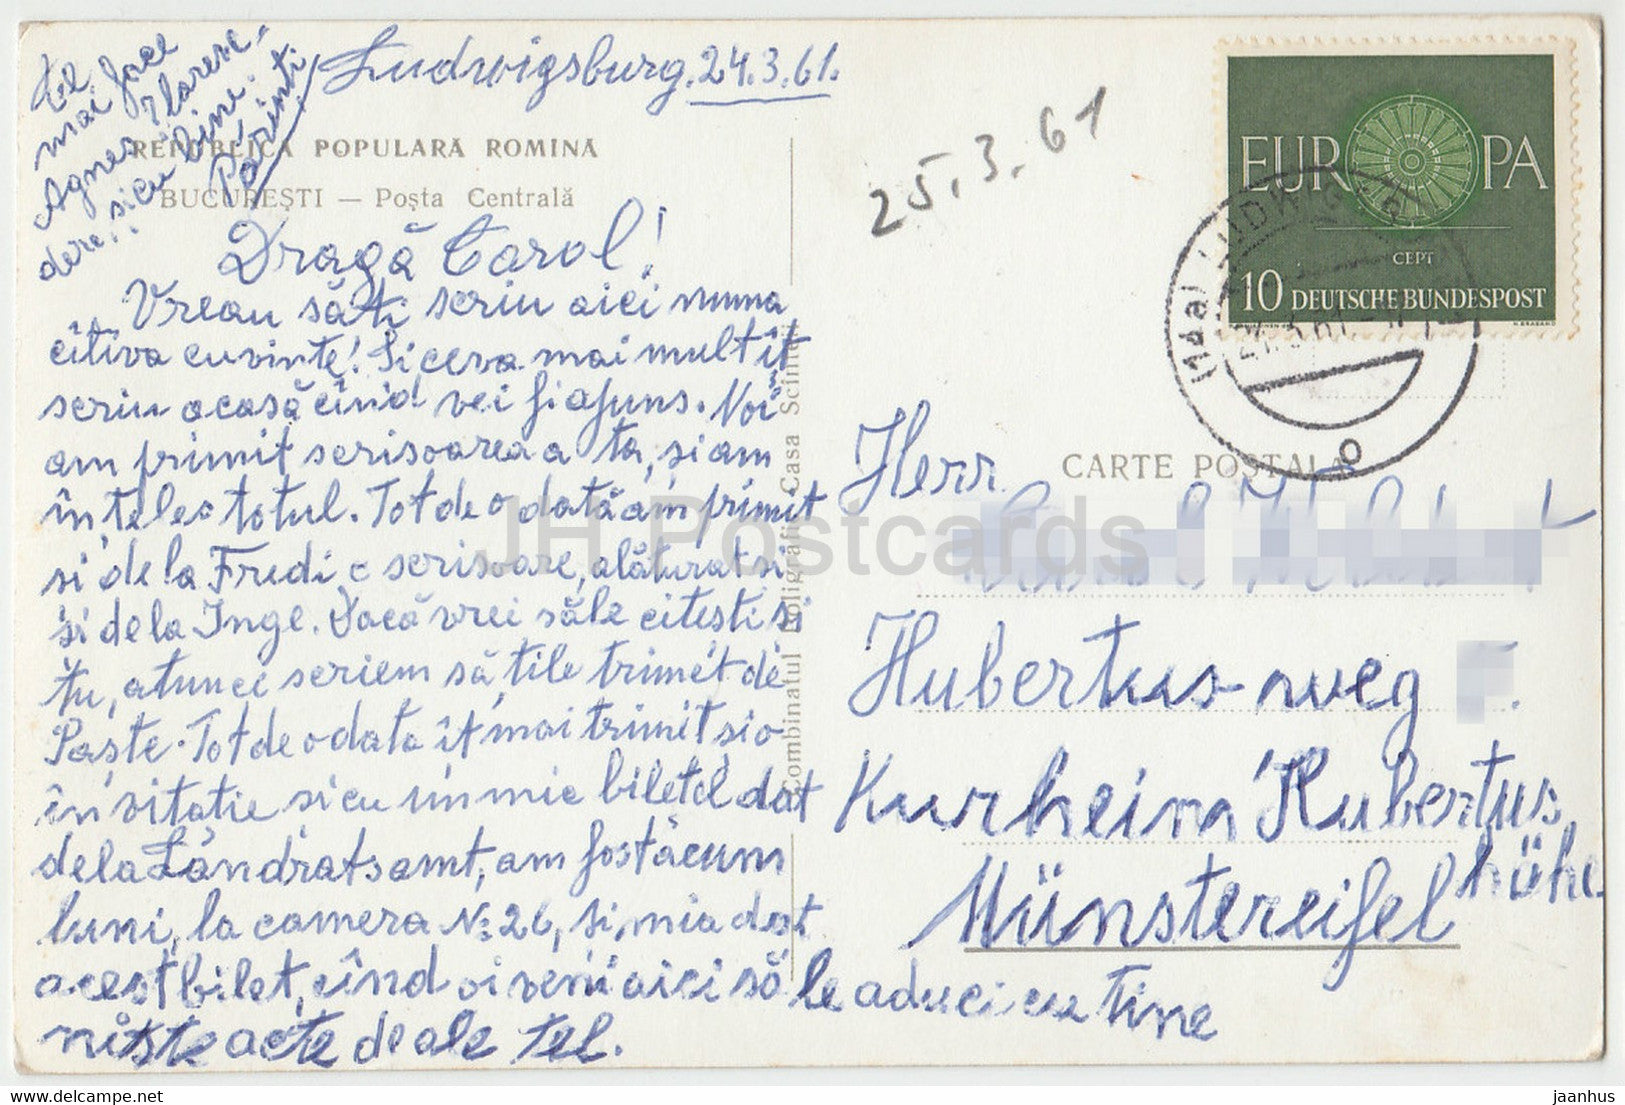 Ludwigsburg. 24.3.61.
mai face
Agnes
dere, si cu bine.
Părinti
REPUBLICA POPULARĂ ROMINĂ
BUCUREȘTI — Poșta Centrală
Dragă Carol!
Vreau să-ti scriu aici numa
cîtiva cuvinte! Si ceva mai mult it
scriu acasă cînd vei fi ajuns. Noi
am primit scrisoarea a ta, si am
înțeles totul. Tot de o dată am primit
si de la Fredi o scrisoare, alăturat si
si de la Inge. Dacă vrei să le citesti si
tu, atunci scriem să ți le trimet de
Paște. Tot de o data ît mai trimit si o
invitatie si cu un mic biletel dat
de la Landratsamt, am fost acum
luni, la camera No 26, si mi a dat
acest bilet, cînd oi veni aici să le aduci cu tine
niste acte de ale tel.
Combinatul Poligrafic Casa Scînteii
25.3.61
EUROPA
CEPT
10 DEUTSCHE BUNDESPOST
(14a) LUDWIGSB
CARTE POSTALA
Herr
Hubertus-weg
Kurheim Hubertus
höhe
Münstereifel
JH Postcards
www.delcampe.net
jaanhus